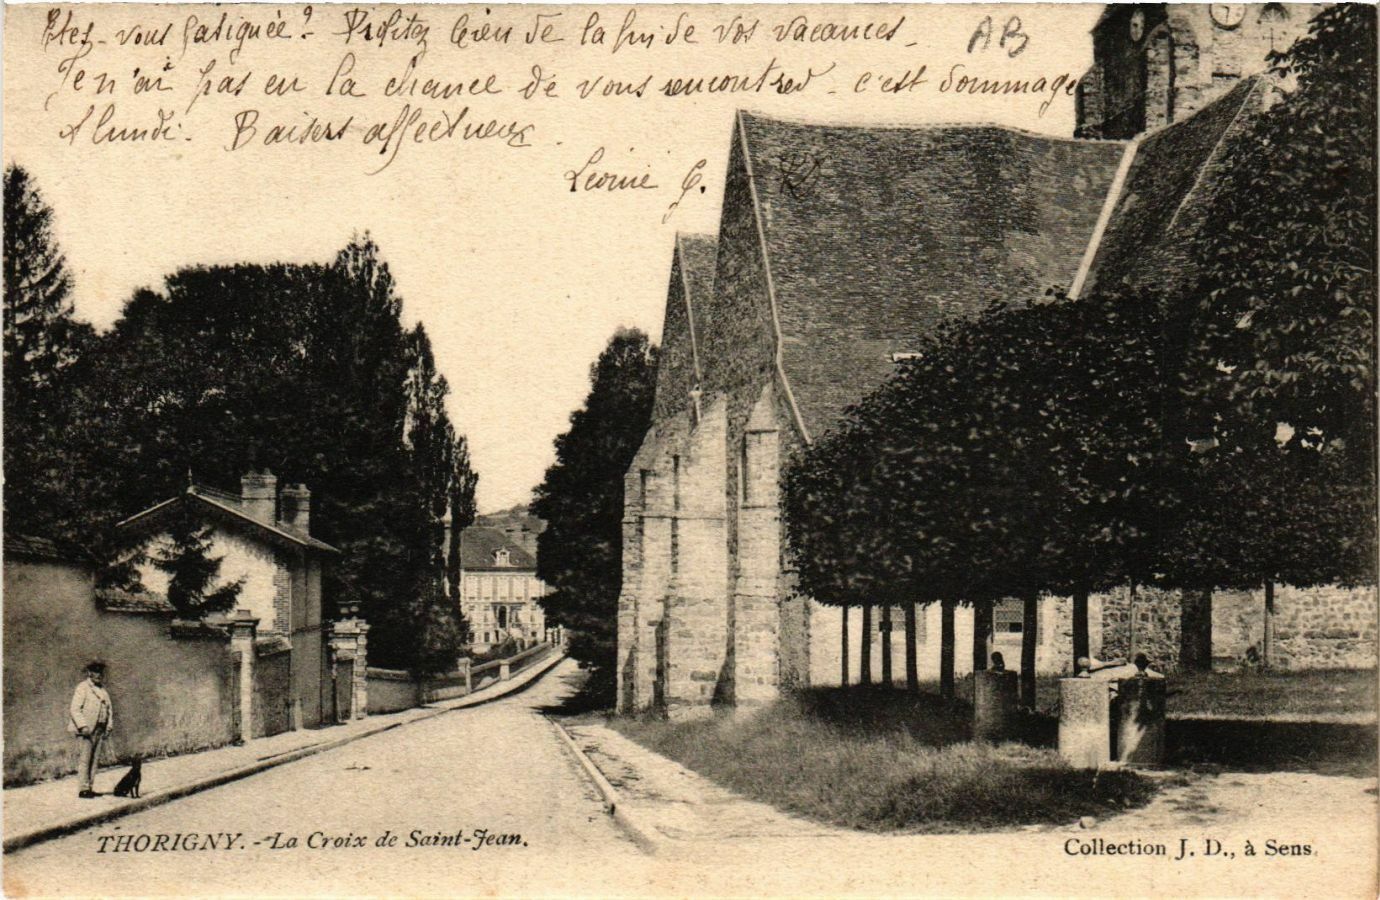 Etes-vous fatiguée? - Profitez bien de la fin de vos vacances -
Je n'ai pas eu la chance de vous rencontrer - c'est dommage
A lundi. Baisers affectueux.
Léonie G.
AB
THORIGNY. - La Croix de Saint-Jean.
Collection J. D., à Sens.